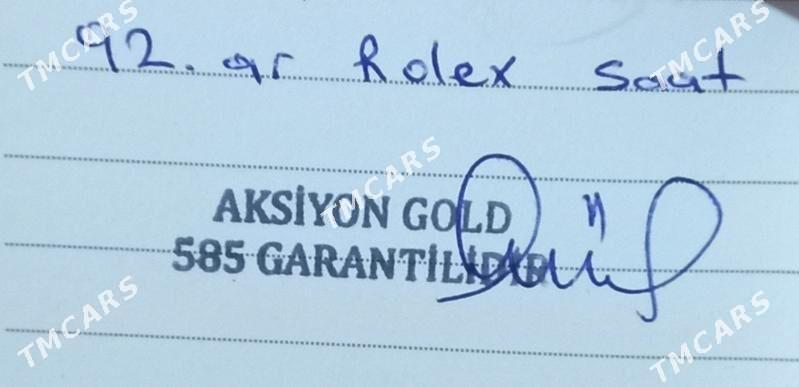 92.gr Rolex Saat
AKSİYON GOLD
585 GARANTİLİDİR
TMCARS
TMCARS
TMCARS
TMCARS
TMCARS